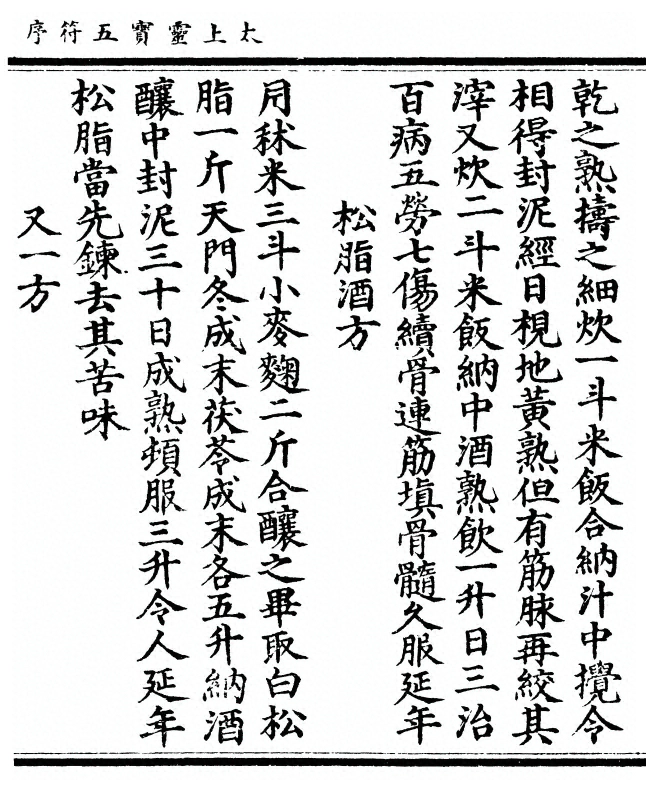 太上靈寶五符序
乾之熟擣之細炊一斗米飯合納汁中攪令
相得封泥經日梘地黃熟但有筋脉再絞其
滓又炊二斗米飯納中酒熟飲一升日三治
百病五勞七傷續骨連筋填骨髓久服延年
松脂酒方
用秫米三斗小麥麴二斤合釀之畢取白松
脂一斤天門冬成末茯苓成末各五升納酒
釀中封泥三十日成熟頓服三升令人延年
松脂當先鍊去其苦味
又一方